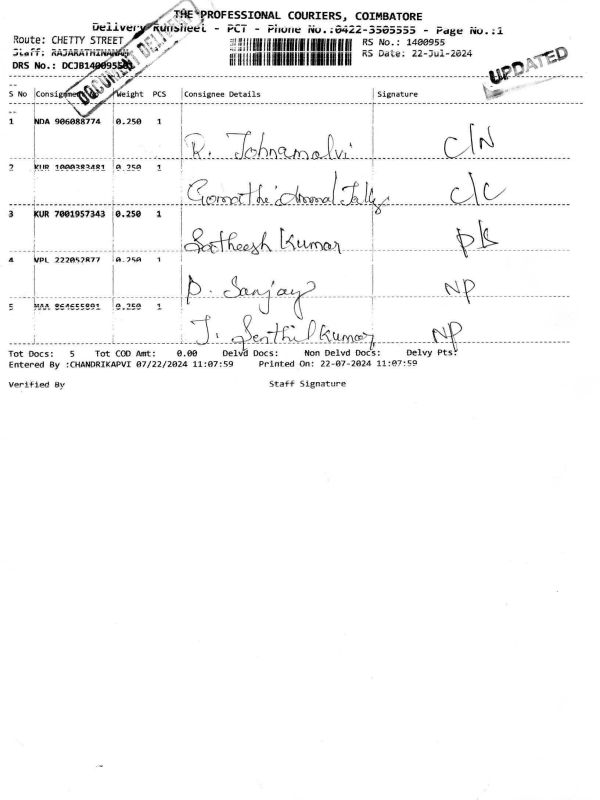 THE PROFESSIONAL COURIERS, COIMBATORE
Delivery Runsheet - PCT - Phone No.:0422-3505555 - Page No.:1
Route: CHETTY STREET RS No.: 1400955
Staff: RAJARATHINAM RS Date: 22-Jul-2024
DRS No.: DCJB1400955
DOCUMENT DELIVERY
UPDATED
S No Consignment No Weight PCS Consignee Details Signature
1 NDA 906088774 0.250 1
R. C/N
2 KUR 1000383481 0.250 1
C/C
3 KUR 7001957343 0.250 1
Satheesh Kumar
4 VPL 222052877 0.250 1
P. Sanjay NP
5 MAA 864655891 0.250 1
J. Senthil Kumar NP
Tot Docs: 5 Tot COD Amt: 0.00 Delvd Docs: Non Delvd Docs: Delvy Pts:
Entered By :CHANDRIKAPVI 07/22/2024 11:07:59 Printed On: 22-07-2024 11:07:59
Verified By Staff Signature